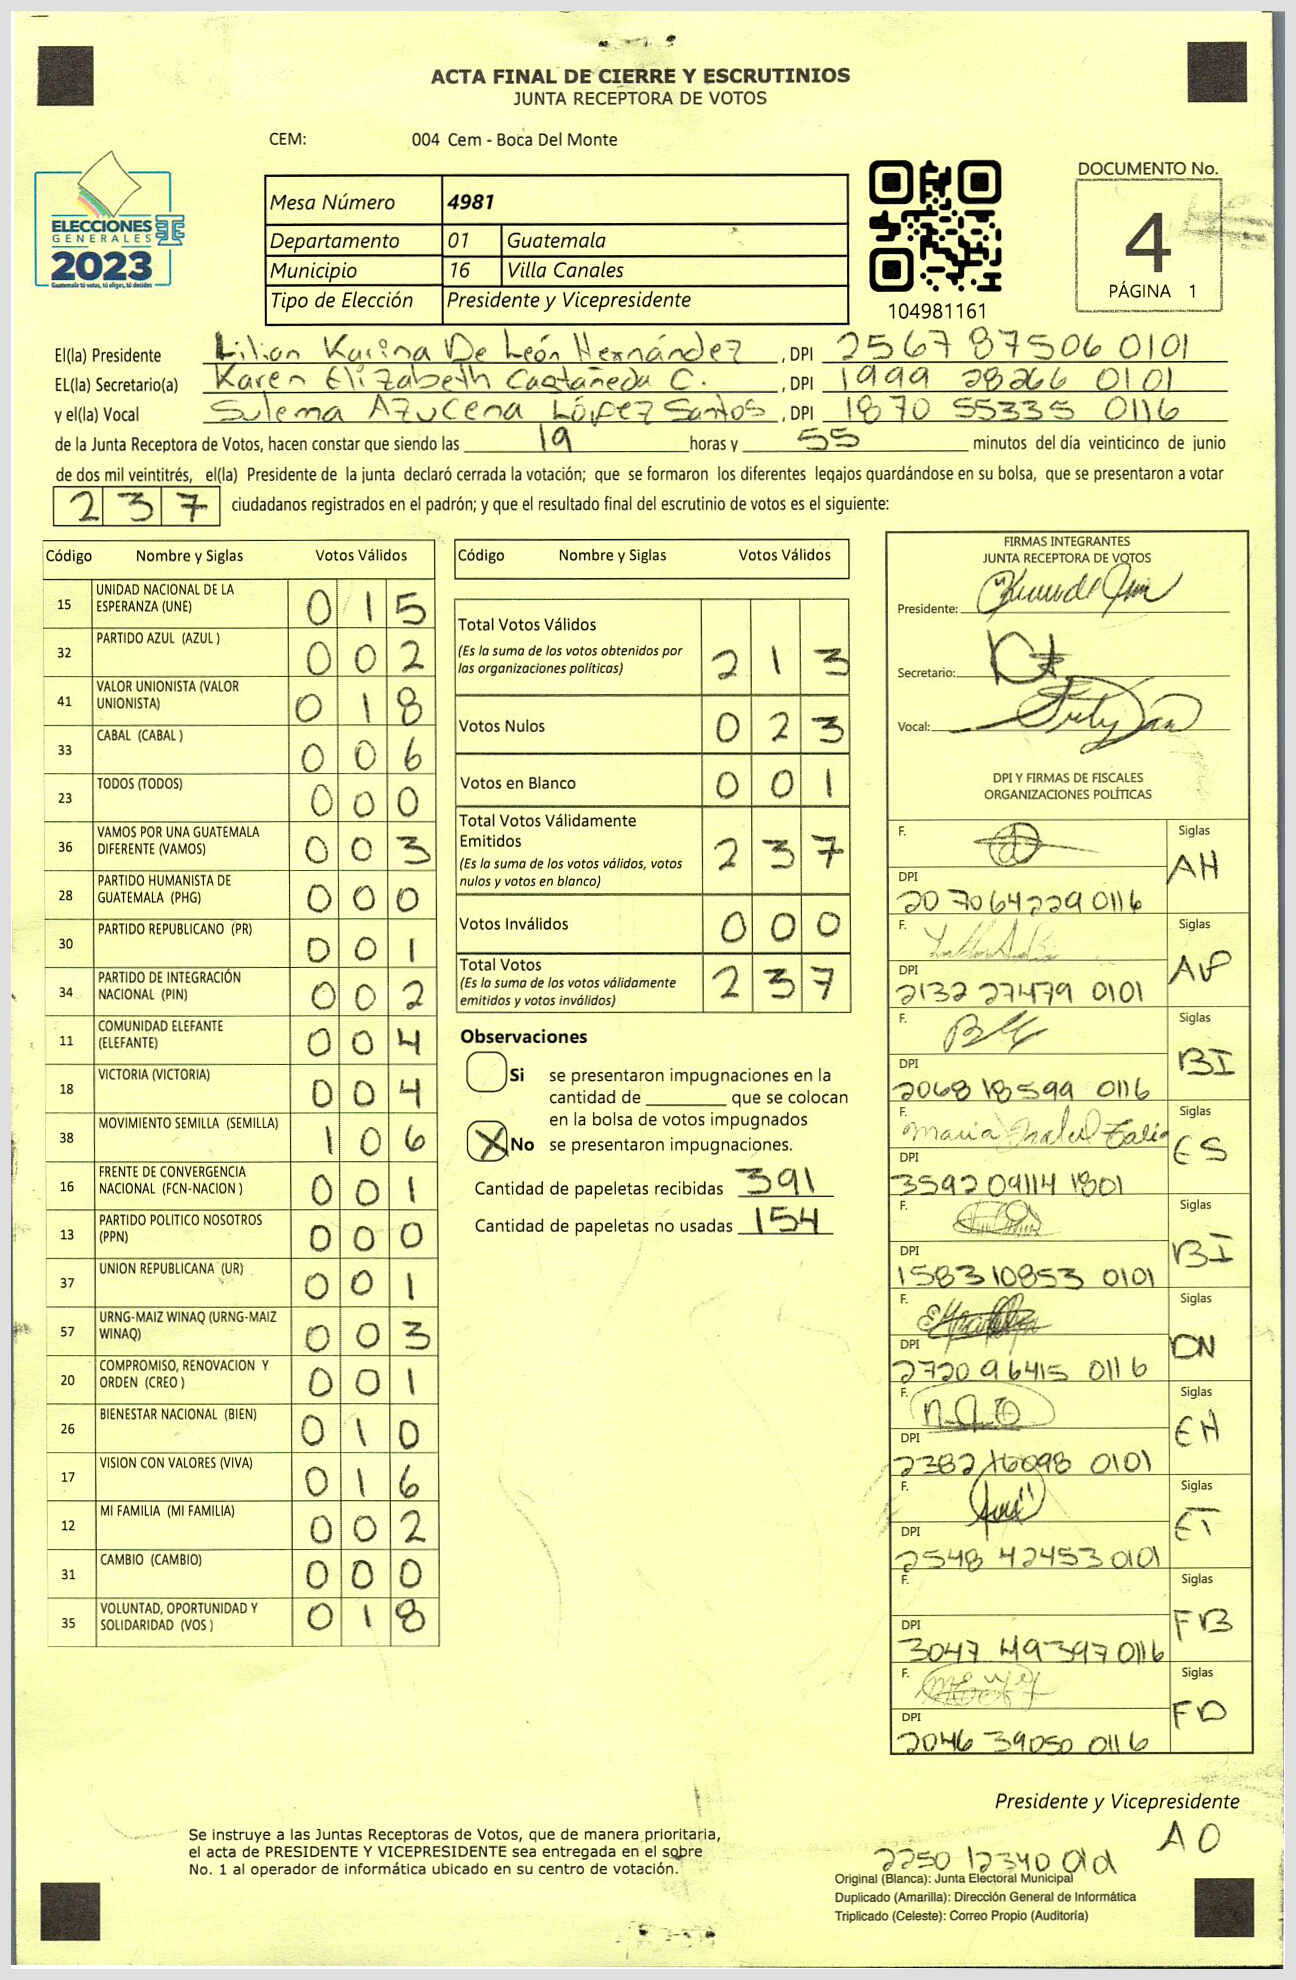 ACTA FINAL DE CIERRE Y ESCRUTINIOS
JUNTA RECEPTORA DE VOTOS
CEM: 004 Cem - Boca Del Monte
ELECCIONES
GENERALES
2023
Guatemala tú votas, tú eliges, tú decides
Mesa Número 4981
Departamento 01 Guatemala
Municipio 16 Villa Canales
Tipo de Elección Presidente y Vicepresidente
104981161
DOCUMENTO No.
4
PÁGINA 1
El(la) Presidente Lilian Karina De León Hernández, DPI 2567 87506 0101
EL(la) Secretario(a) Karen Elizabeth Castañeda C., DPI 1999 28266 0101
y el(la) Vocal Sulema Azucena López Santos, DPI 1870 55335 0116
de la Junta Receptora de Votos, hacen constar que siendo las 19 horas y 55 minutos del día veinticinco de junio
de dos mil veintitrés, el(la) Presidente de la junta declaró cerrada la votación; que se formaron los diferentes legajos guardándose en su bolsa, que se presentaron a votar
237 ciudadanos registrados en el padrón; y que el resultado final del escrutinio de votos es el siguiente:
Código Nombre y Siglas Votos Válidos
15 UNIDAD NACIONAL DE LA ESPERANZA (UNE) 0 1 5
32 PARTIDO AZUL (AZUL ) 0 0 2
41 VALOR UNIONISTA (VALOR UNIONISTA) 0 1 8
33 CABAL (CABAL ) 0 0 6
23 TODOS (TODOS) 0 0 0
36 VAMOS POR UNA GUATEMALA DIFERENTE (VAMOS) 0 0 3
28 PARTIDO HUMANISTA DE GUATEMALA (PHG) 0 0 0
30 PARTIDO REPUBLICANO (PR) 0 0 1
34 PARTIDO DE INTEGRACIÓN NACIONAL (PIN) 0 0 2
11 COMUNIDAD ELEFANTE (ELEFANTE) 0 0 4
18 VICTORIA (VICTORIA) 0 0 4
38 MOVIMIENTO SEMILLA (SEMILLA) 1 0 6
16 FRENTE DE CONVERGENCIA NACIONAL (FCN-NACION ) 0 0 1
13 PARTIDO POLITICO NOSOTROS (PPN) 0 0 0
37 UNION REPUBLICANA (UR) 0 0 1
57 URNG-MAIZ WINAQ (URNG-MAIZ WINAQ) 0 0 3
20 COMPROMISO, RENOVACION Y ORDEN (CREO ) 0 0 1
26 BIENESTAR NACIONAL (BIEN) 0 1 0
17 VISION CON VALORES (VIVA) 0 1 6
12 MI FAMILIA (MI FAMILIA) 0 0 2
31 CAMBIO (CAMBIO) 0 0 0
35 VOLUNTAD, OPORTUNIDAD Y SOLIDARIDAD (VOS ) 0 1 8
Código Nombre y Siglas Votos Válidos
Total Votos Válidos 2 1 3
(Es la suma de los votos obtenidos por las organizaciones políticas)
Votos Nulos 0 2 3
Votos en Blanco 0 0 1
Total Votos Válidamente Emitidos 2 3 7
(Es la suma de los votos válidos, votos nulos y votos en blanco)
Votos Inválidos 0 0 0
Total Votos 2 3 7
(Es la suma de los votos válidamente emitidos y votos inválidos)
Observaciones
Si se presentaron impugnaciones en la
cantidad de ________ que se colocan
en la bolsa de votos impugnados
X No se presentaron impugnaciones.
Cantidad de papeletas recibidas 391
Cantidad de papeletas no usadas 154
FIRMAS INTEGRANTES
JUNTA RECEPTORA DE VOTOS
Presidente:
Secretario:
Vocal:
DPI Y FIRMAS DE FISCALES
ORGANIZACIONES POLÍTICAS
F. Siglas AH
DPI 20 7064229 0116
F. Siglas AP
DPI 2132 27479 0101
F. Siglas BI
DPI 2068 18599 0116
F. Siglas ES
DPI 3592 09114 1801
F. Siglas BI
DPI 1583 10853 0101
F. Siglas DN
DPI 2720 96415 0116
F. Siglas EH
DPI 2382 16098 0101
F. Siglas ET
DPI 2548 42453 0101
F. Siglas FB
DPI 3047 49397 0116
F. Siglas FD
DPI 2046 39050 0116
Presidente y Vicepresidente
AO
2250 12340
Se instruye a las Juntas Receptoras de Votos, que de manera prioritaria,
el acta de PRESIDENTE Y VICEPRESIDENTE sea entregada en el sobre
No. 1 al operador de informática ubicado en su centro de votación.
Original (Blanca): Junta Electoral Municipal
Duplicado (Amarilla): Dirección General de Informática
Triplicado (Celeste): Correo Propio (Auditoría)